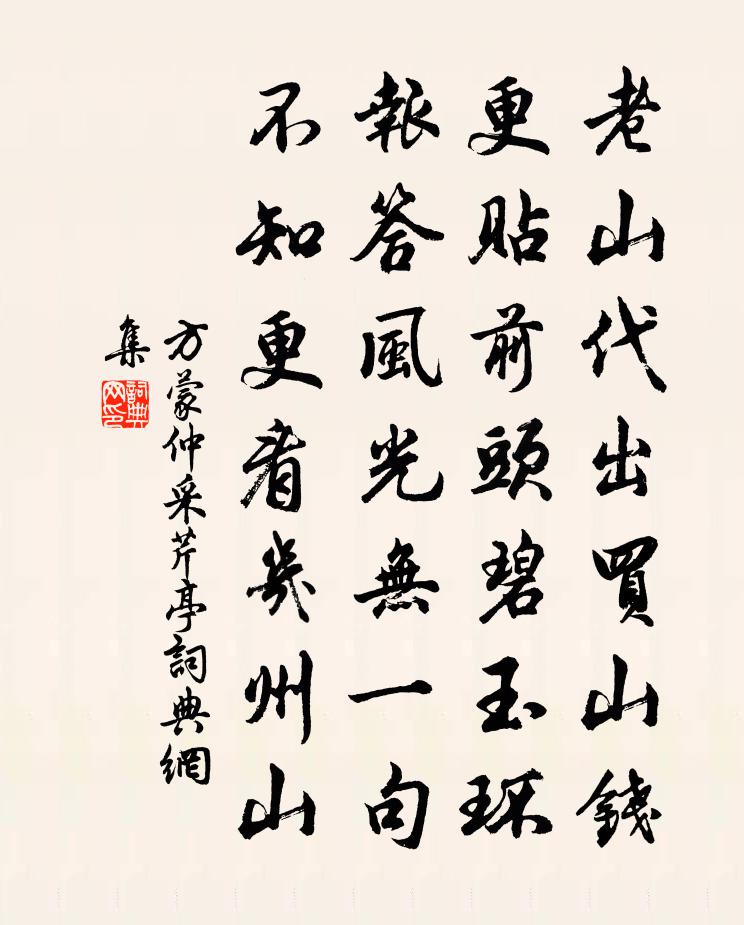 老山代出買山錢
更貼前頭碧玉环
報答風光無一句
不知更看幾州山
方蒙仲采芹亭詞典網
集
詞典网印